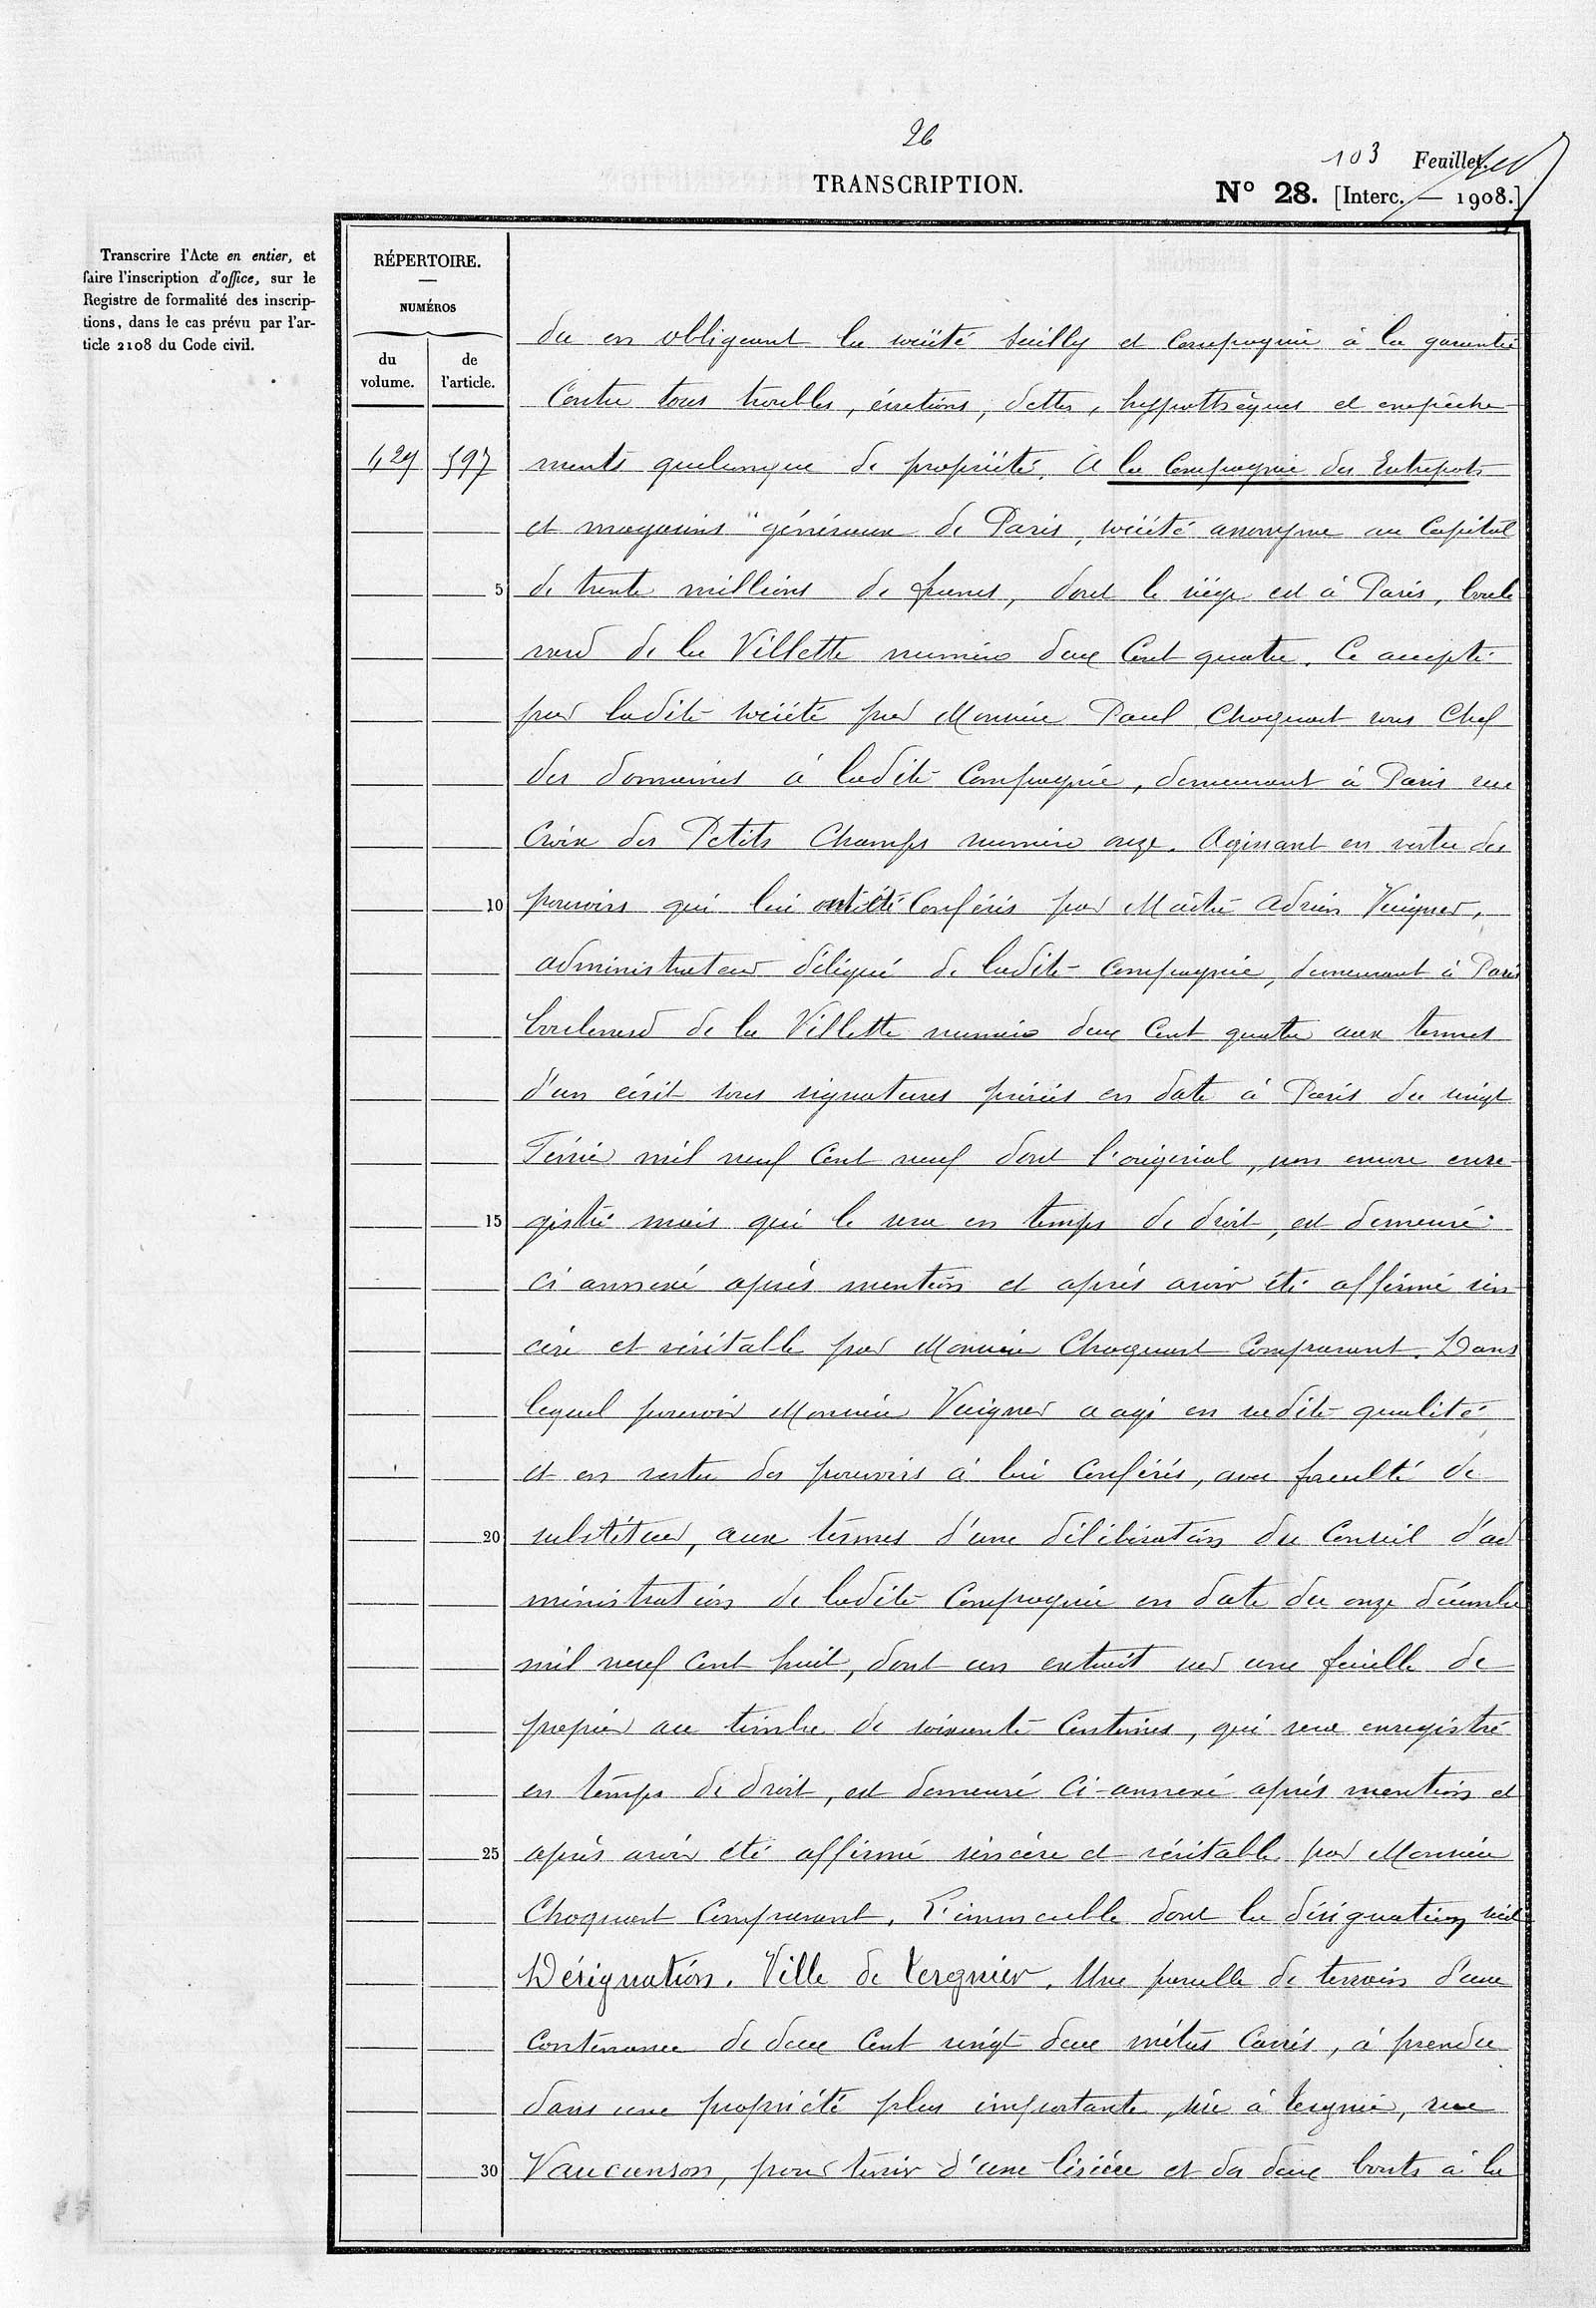 26
TRANSCRIPTION.
103 Feuillet.
N° 28. [Interc. — 1908.]
Transcrire l'Acte en entier, et
faire l'inscription d'office, sur le
Registre de formalité des inscrip-
tions, dans le cas prévu par l'ar-
ticle 2108 du Code civil.
RÉPERTOIRE.
NUMÉROS
du volume.
de l'article.
429 597
du en obligeant la société et Compagnie à la garantie
Contre tous troubles, évictions, dettes, hyppothèques et empêche
ments quelconque de propriété. A la Compagnie des Entrepots
et magasins "généraux de Paris, société anonyme au Capital
5 de trente millions de francs, dont le siège est à Paris, boule
vard de la Villette numéro deux Cent quatre. Ce accepté
par ladite société par Monsieur Paul Choquart sous Chef
des domaines à ladite Compagnie, demeurant à Paris rue
Croix des Petits Champs numéro onze. Agissant en vertu des
10 pouvoirs qui lui ont été Conférés par Maître Adrien Vuigner,
administrateur délégué de ladite Compagnie, demeurant à Paris
boulevard de la Villette numéro deux Cent quatre aux termes
d'un écrit sous signatures privées en date à Paris du vingt
Février mil neuf Cent neuf dont l'original, non encore enre-
15 gistré mais qui le sera en temps de droit, est demeuré
ci annexé après mention et après avoir été affirmé sin
cère et véritable par Monsieur Choquart Comparant. Dans
lequel pouvoir Monsieur Vuigner a agi en sadite qualité
et en vertu des pouvoirs à lui Conférés, avec faculté de
20 substituer, aux termes d'une délibération du Conseil d'ad
ministration de ladite Compagnie en date du onze décembre
mil neuf cent huit, dont un extrait sur une feuille de
papier au timbre de soixante Centimes, qui sera enregistré
en temps de droit, est demeuré Ci-annexé après mention et
25 après avoir été affirmé sincère et véritable par Monsieur
Choquart Comparant. L'immeuble dont la désignation suit
Désignation. Ville de Tergnier. Une parcelle de terrain d'une
Contenance de deux Cent vingt deux mètres Carrés, à prendre
dans une propriété plus importante, sise à Tergnier, rue
30 Vaucanson, pour tenir d'une lisière et des deux bouts à la